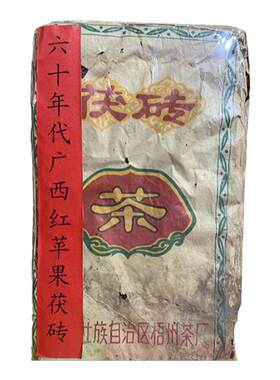 六十年代广西红苹果茯砖
茯砖
茶
壮族自治区梧州茶厂